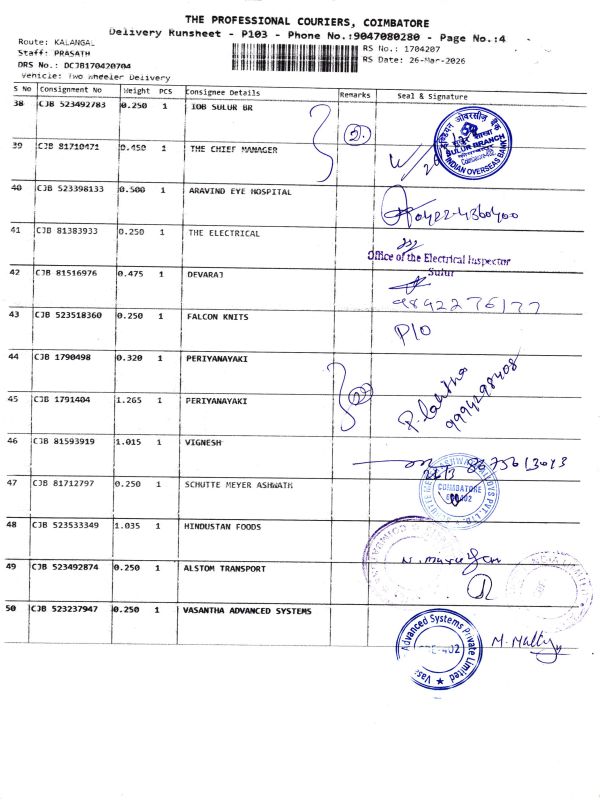 THE PROFESSIONAL COURIERS, COIMBATORE
Delivery Runsheet - P103 - Phone No.:9047080280 - Page No.:4
Route: KALANGAL
RS No.: 1704207
Staff: PRASATH
RS Date: 26-Mar-2026
DRS No.: DCJB170420704
Vehicle: Two Wheeler Delivery
S No Consignment No Weight PCS Consignee Details Remarks Seal & Signature
38 CJB 523492783 0.250 1 IOB SULUR BR
39 CJB 81710471 0.450 1 THE CHIEF MANAGER
2
SULUR BRANCH
INDIAN OVERSEAS BANK
40 CJB 523398133 0.500 1 ARAVIND EYE HOSPITAL
0422-4360400
41 CJB 81383933 0.250 1 THE ELECTRICAL
Office of the Electrical Inspector
Sulur
42 CJB 81516976 0.475 1 DEVARAJ
9892276177
43 CJB 523518360 0.250 1 FALCON KNITS
P/O
44 CJB 1790498 0.320 1 PERIYANAYAKI
45 CJB 1791404 1.265 1 PERIYANAYAKI
2
P. Lalitha
9994298408
46 CJB 81593919 1.015 1 VIGNESH
47 CJB 81712797 0.250 1 SCHUTTE MEYER ASHWATH
COIMBATORE
48 CJB 523533349 1.035 1 HINDUSTAN FOODS
49 CJB 523492874 0.250 1 ALSTOM TRANSPORT
50 CJB 523237947 0.250 1 VASANTHA ADVANCED SYSTEMS
Advanced Systems Private Limited